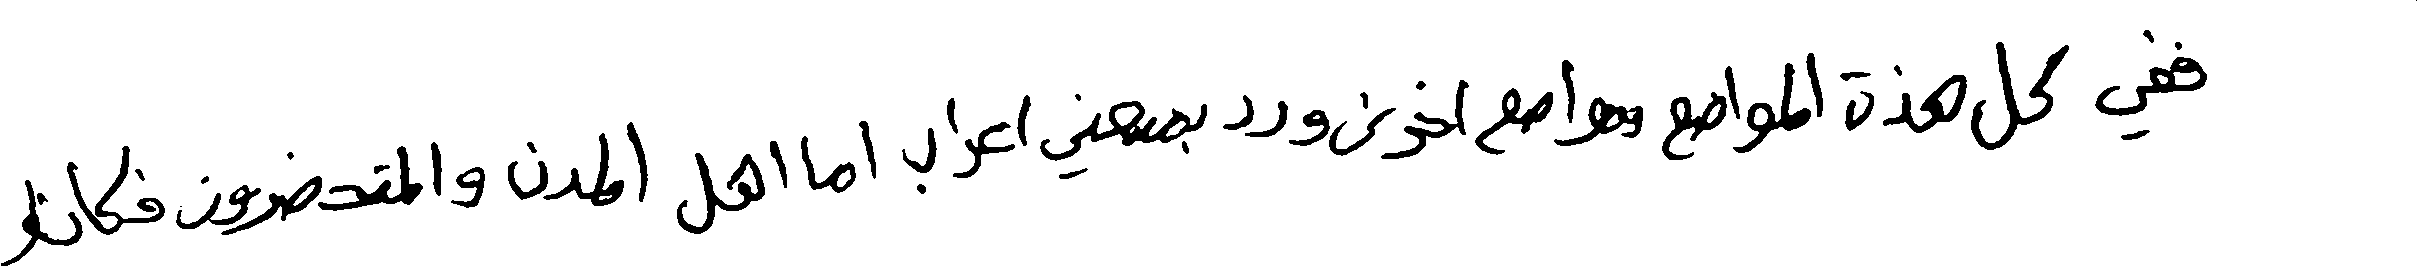 ففي كل هذة المواضع ومواضع اخرى ورد بمعني اعراب اما اهل المدن والمتحضرون فكانوا